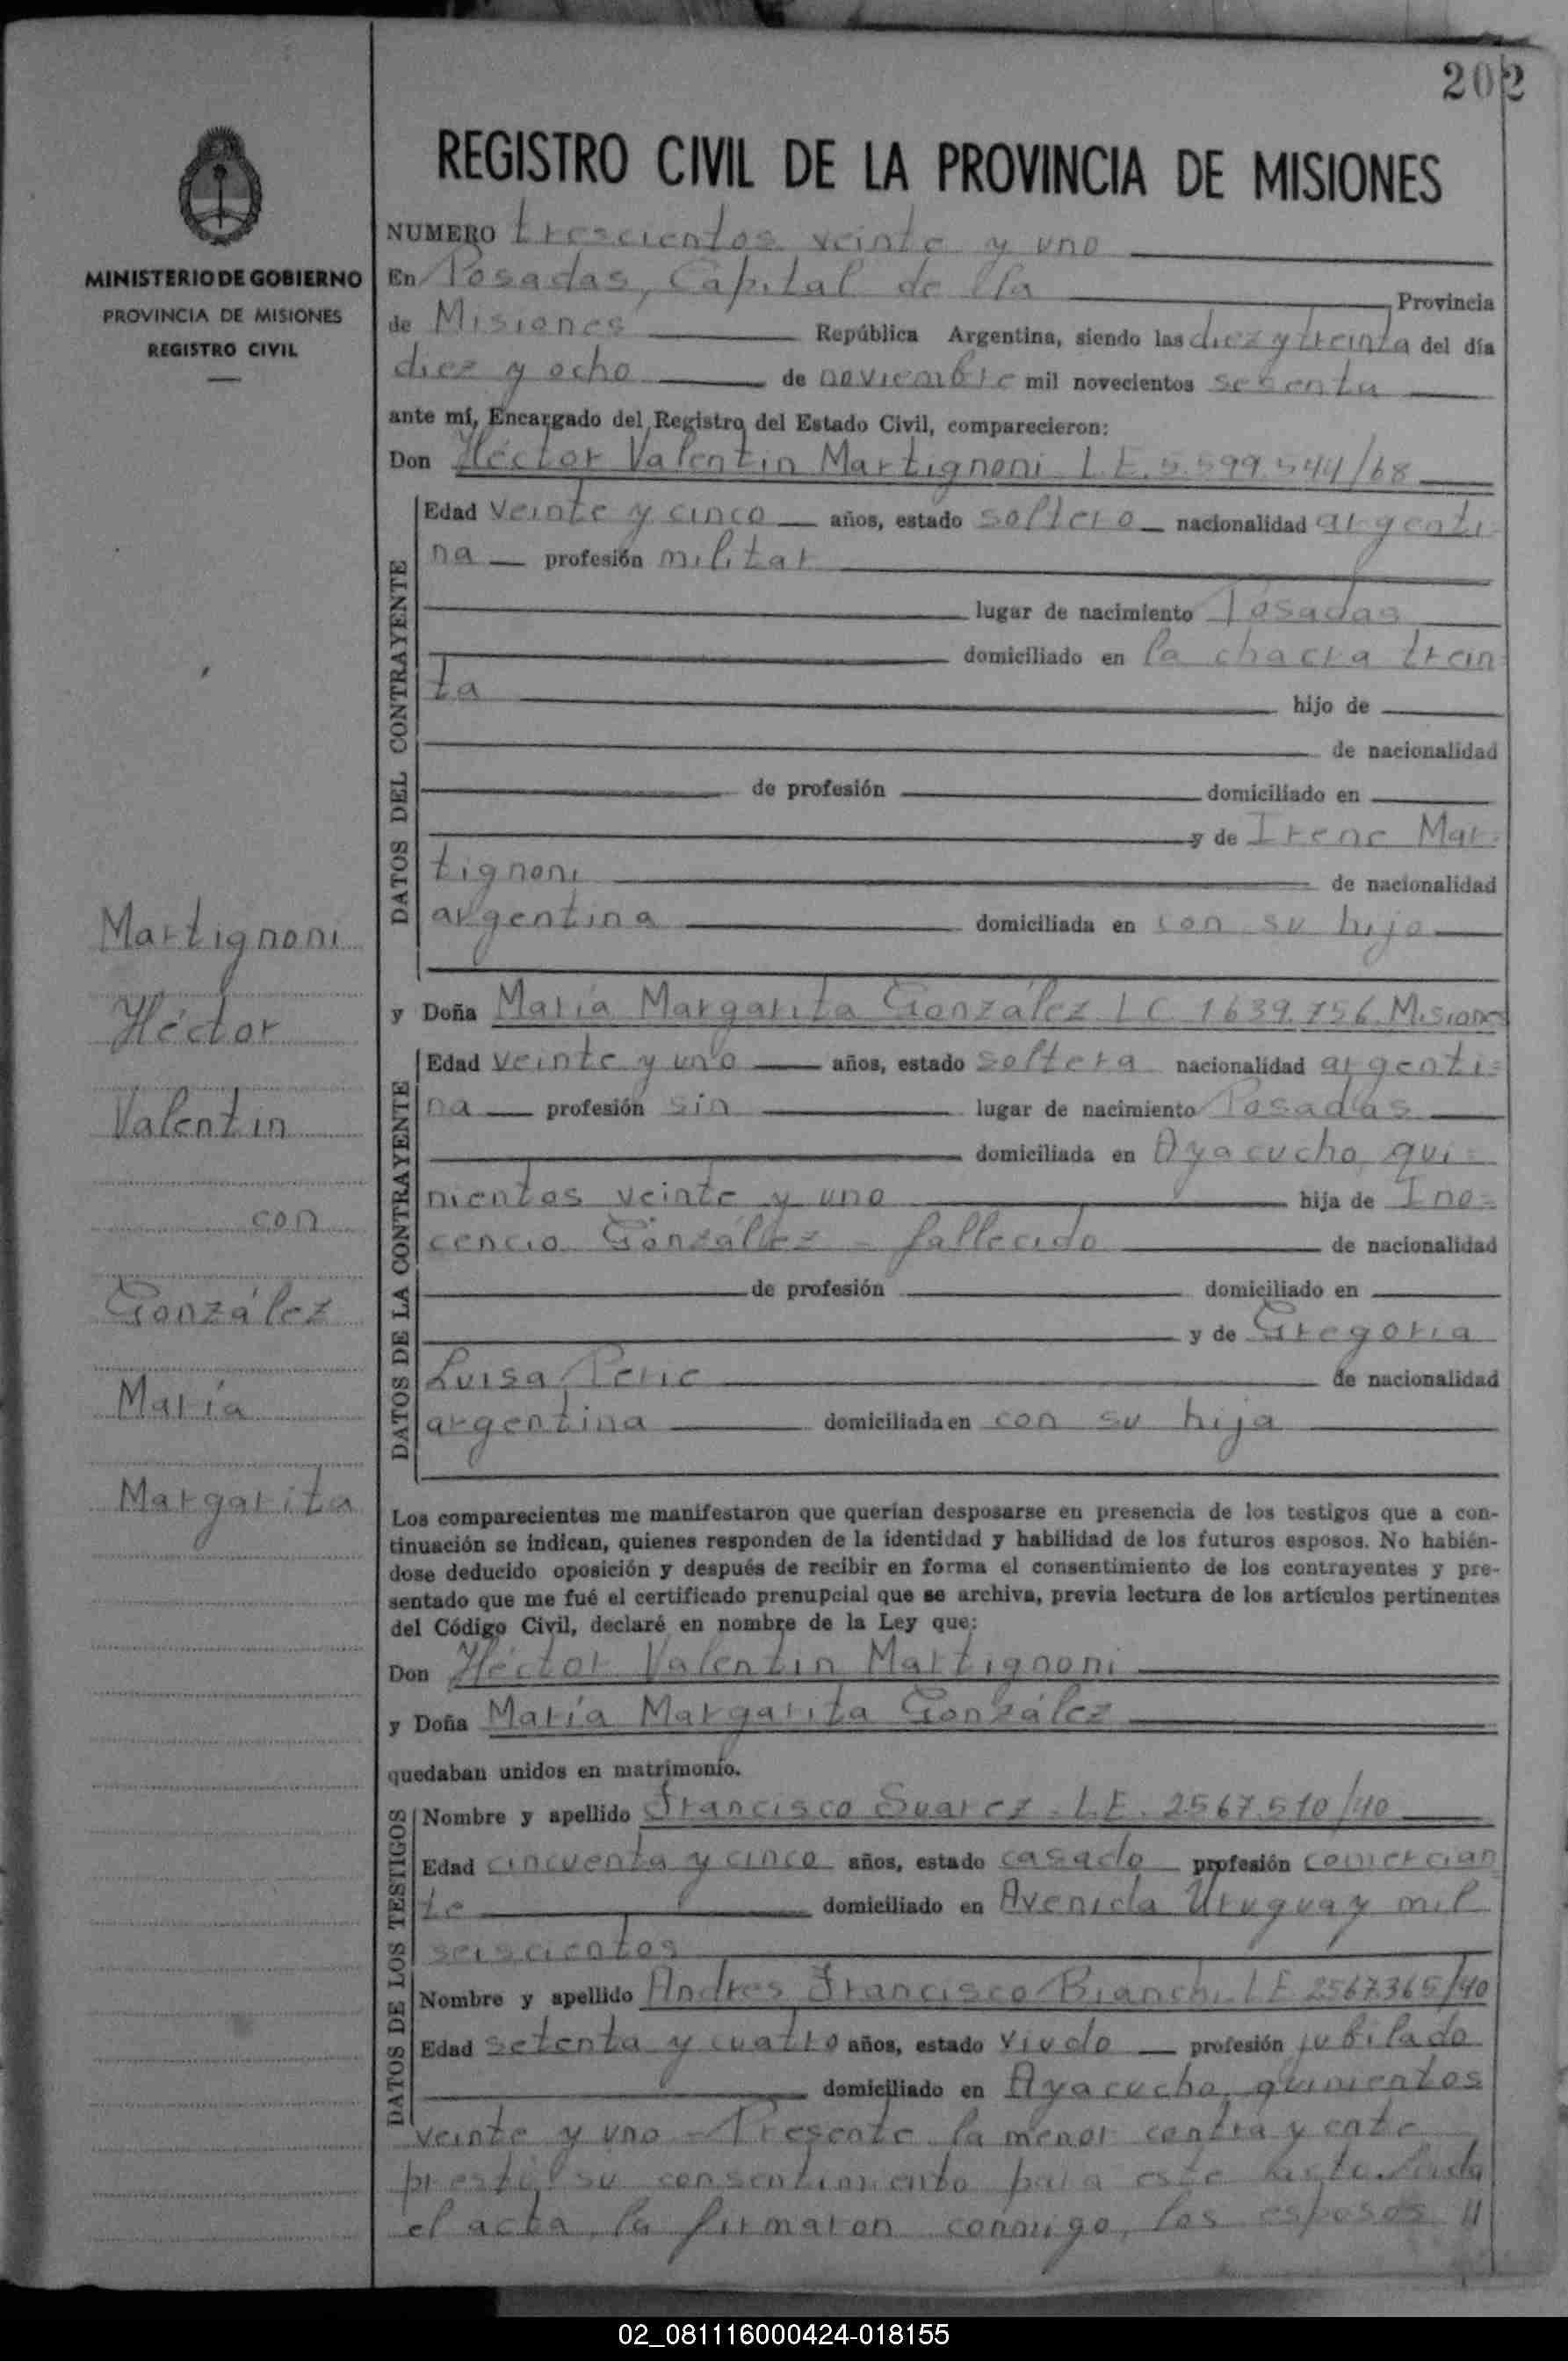 202
REGISTRO CIVIL DE LA PROVINCIA DE MISIONES
MINISTERIO DE GOBIERNO
PROVINCIA DE MISIONES
REGISTRO CIVIL
NUMERO trescientos veinte y uno
En Posadas, Capital de lla Provincia
de Misiones República Argentina, siendo las diez y treinta del día
diez y ocho de noviembre mil novecientos sesenta
ante mí, Encargado del Registro del Estado Civil, comparecieron:
Don Héctor Valentin Martignoni L.E. 5.599.544/68
DATOS DEL CONTRAYENTE
Edad veinte y cinco años, estado soltero nacionalidad argenti=
na profesión militar
lugar de nacimiento Posadas
domiciliado en la chacra trein=
ta hijo de
de nacionalidad
de profesión domiciliado en
y de Irene Mar=
tignoni de nacionalidad
argentina domiciliada en con su hijo
Martignoni
Héctor
Valentin
con
González
María
Margarita
y Doña María Margarita González L C 1639.756 Misiones
DATOS DE LA CONTRAYENTE
Edad veinte y uno años, estado soltera nacionalidad argenti=
na profesión sin lugar de nacimiento Posadas
domiciliada en Ayacucho qui=
nientos veinte y uno hija de Ino=
cencio González - fallecido de nacionalidad
de profesión domiciliado en
y de Gregoria
Luisa Peric de nacionalidad
argentina domiciliada en con su hija
Los comparecientes me manifestaron que querían desposarse en presencia de los testigos que a con-
tinuación se indican, quienes responden de la identidad y habilidad de los futuros esposos. No habién-
dose deducido oposición y después de recibir en forma el consentimiento de los contrayentes y pre-
sentado que me fué el certificado prenupcial que se archiva, previa lectura de los artículos pertinentes
del Código Civil, declaré en nombre de la Ley que:
Don Héctor Valentin Martignoni
y Doña María Margarita González
quedaban unidos en matrimonio.
DATOS DE LOS TESTIGOS
Nombre y apellido Francisco Suarez - L.E. 2567.510/40
Edad cincuenta y cinco años, estado casado profesión comercian
te domiciliado en Avenida Uruguay mil
seiscientos
Nombre y apellido Andres Francisco Bianchi L E 2567.365/40
Edad setenta y cuatro años, estado viudo profesión jubilado
domiciliado en Ayacucho quinientos
veinte y uno - Presente la menor contrayente
prestó su consentimiento para este acto. Leida
el acta, la firmaron conmigo, los esposos //
02_081116000424-018155